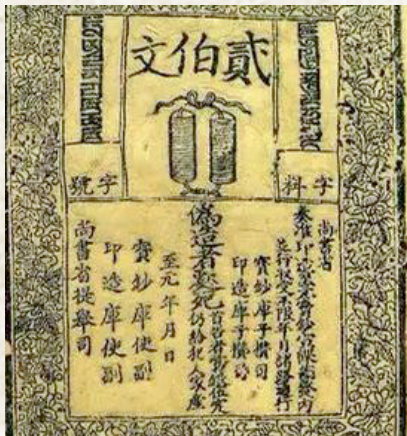 貳伯文
字料
字號
尚書省
奏准印造至元寶鈔宣課差役內
並行收受不限年月諸路通行
寶鈔庫子攢司
印造庫子攢司
偽造者處死
首告者賞銀伍定
仍給犯人家産
至元 年 月 日
寶鈔庫使副
印造庫使副
尚書省提舉司